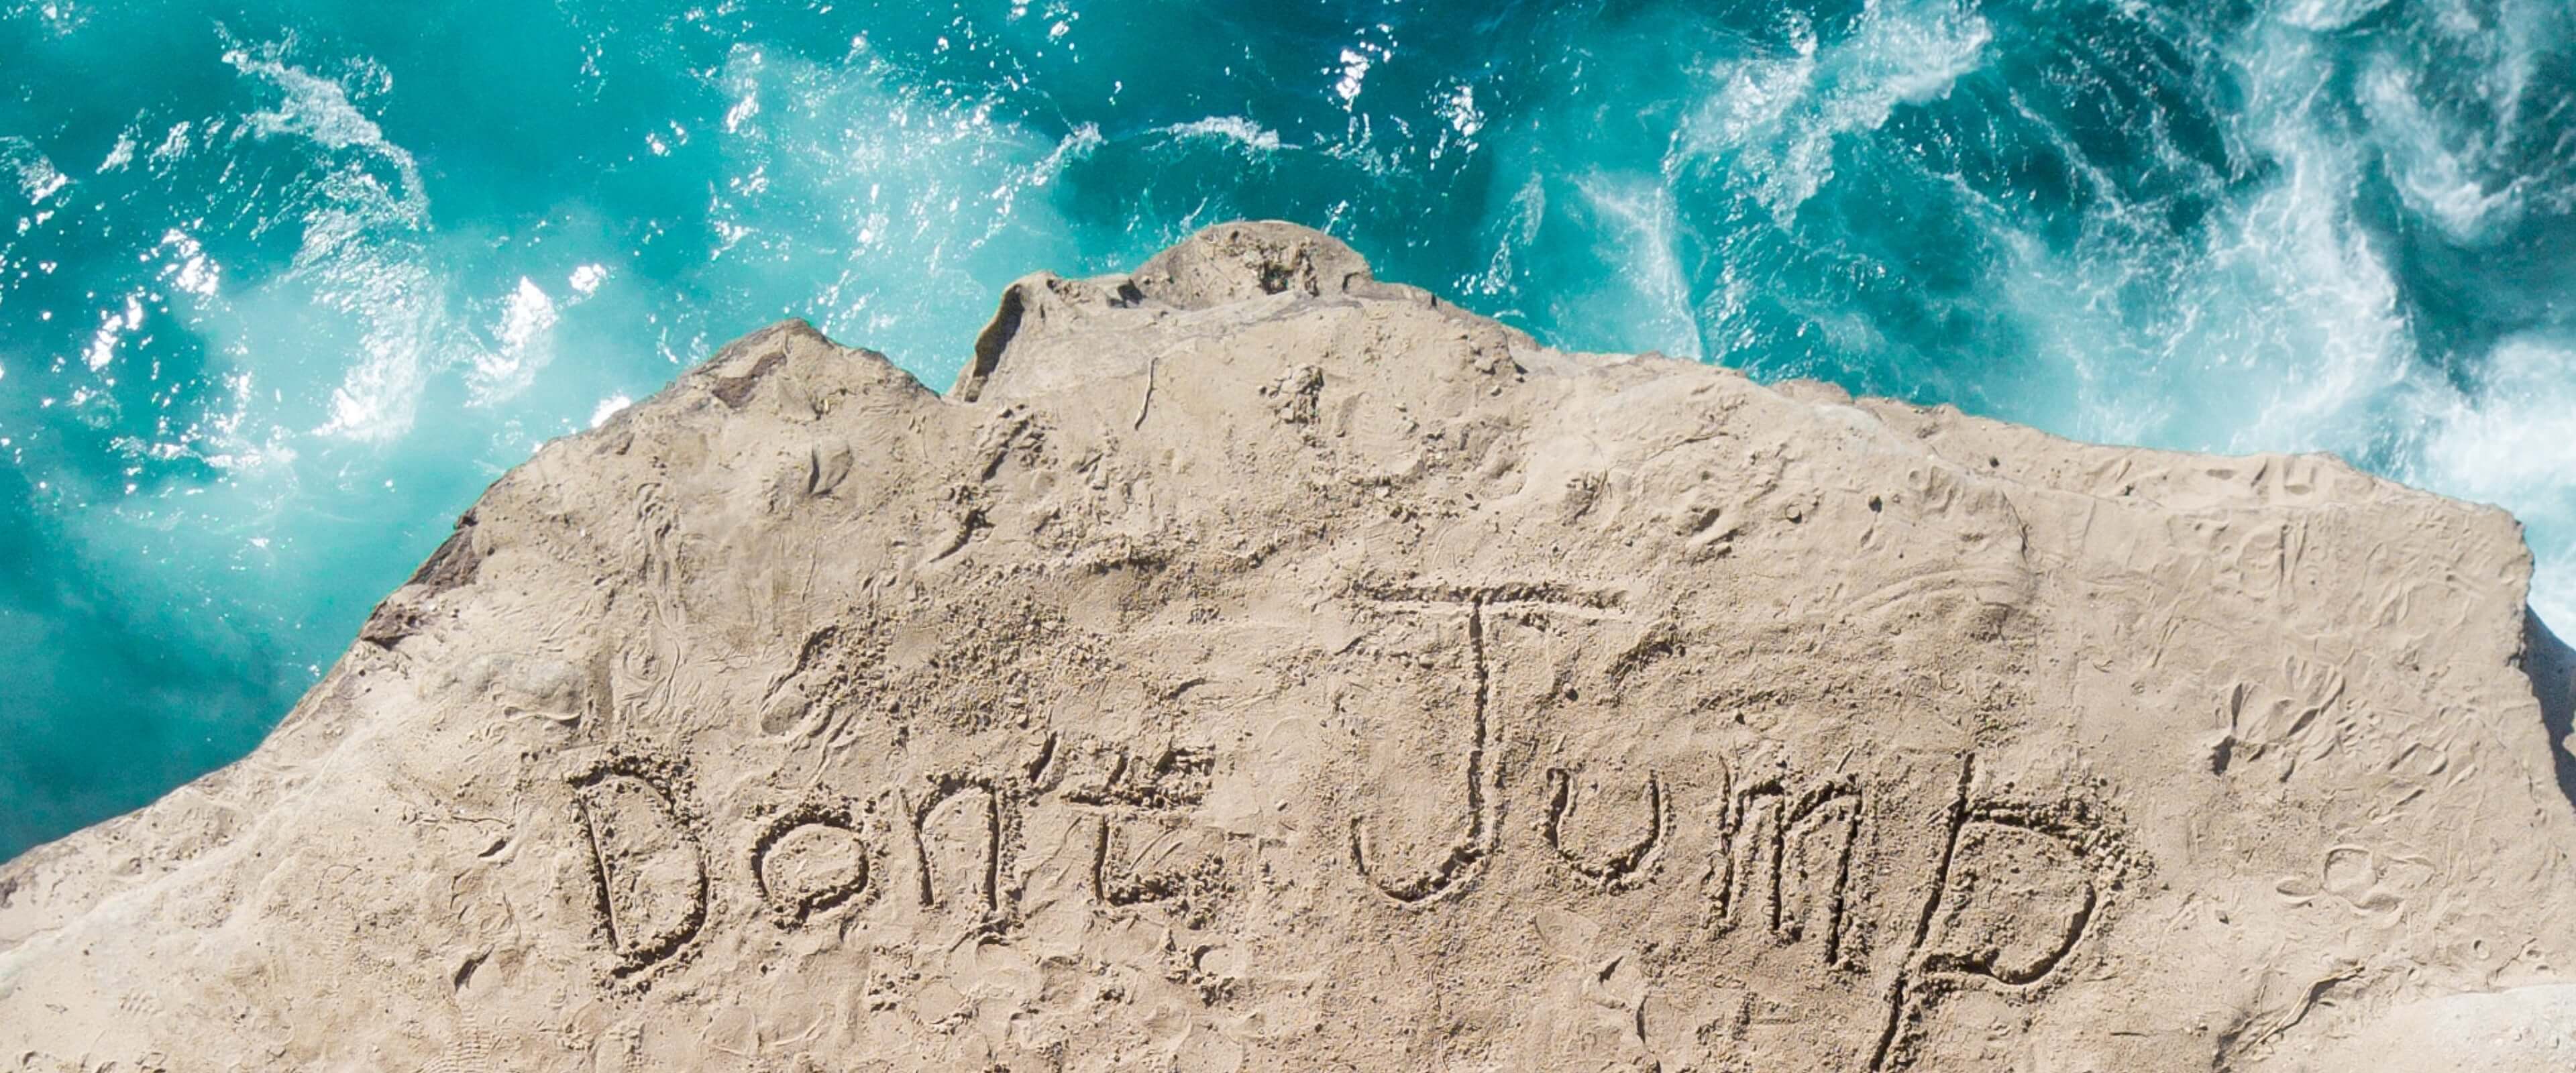 Don't Jump